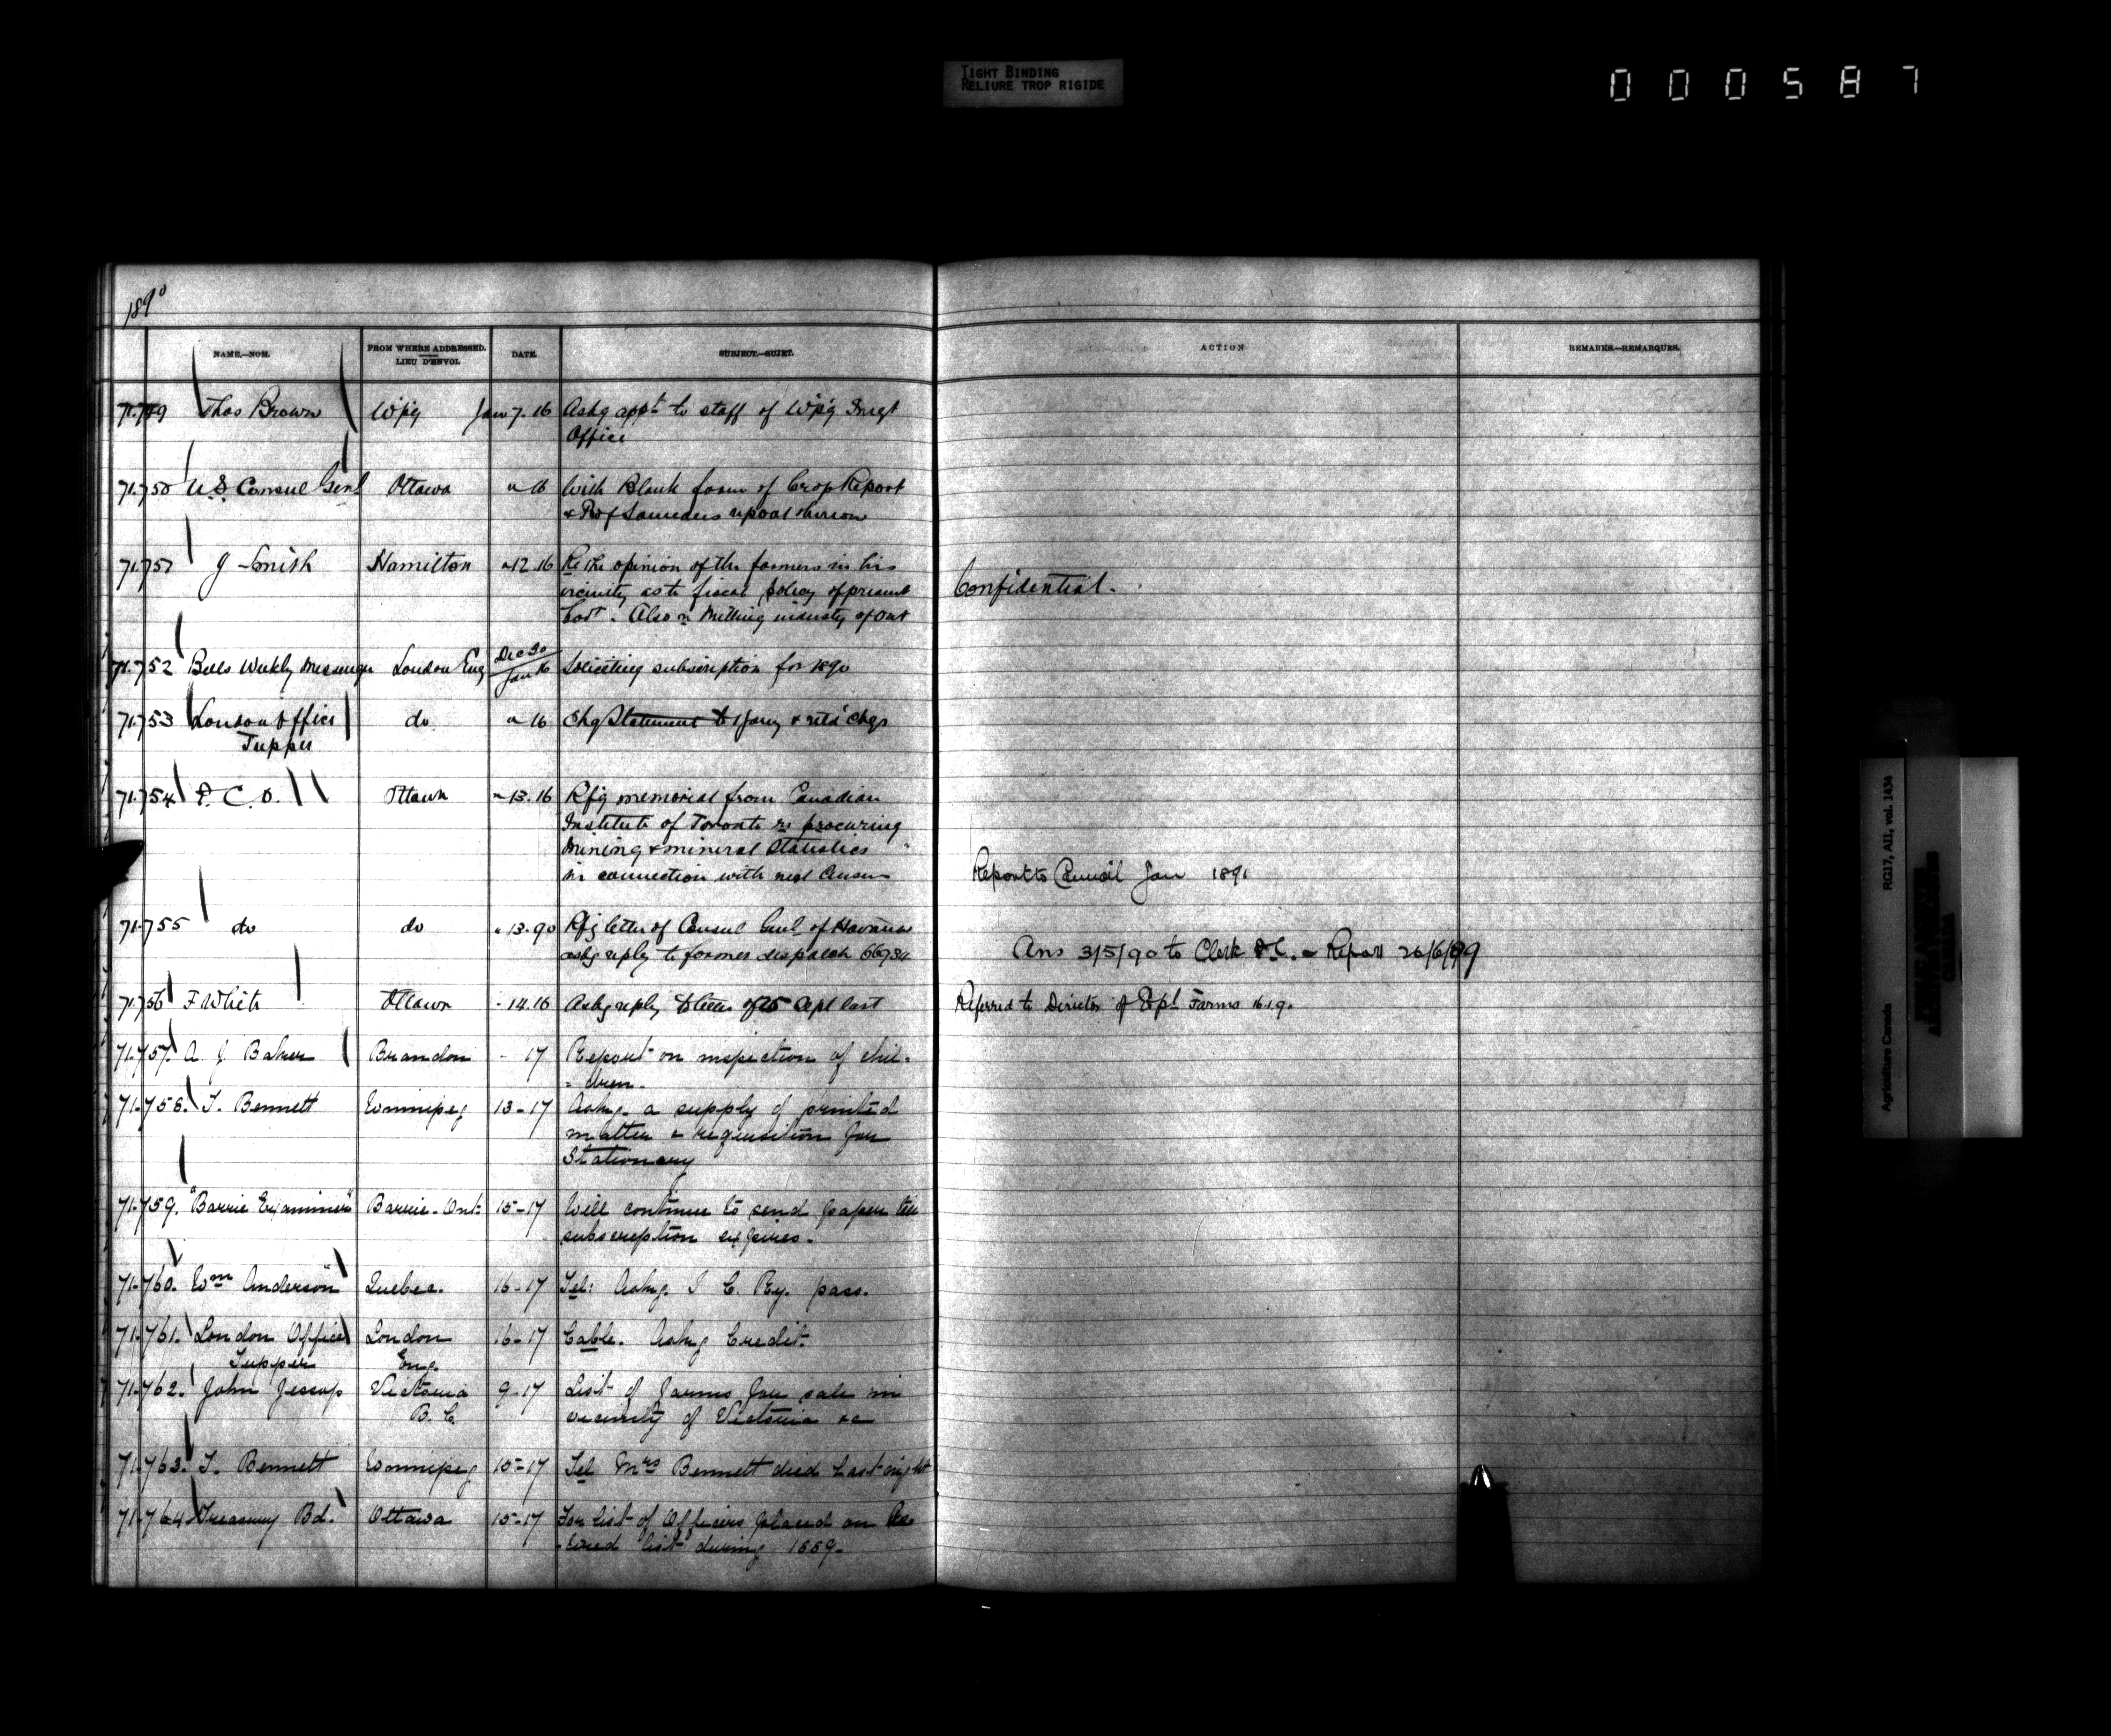 TIGHT BINDING
RELIURE TROP RIGIDE
000587
1890
NAME.—NOM.
FROM WHERE ADDRESSED.
LIEU D'ENVOI.
DATE.
SUBJECT.—SUJET.
ACTION
REMARKS.—REMARQUES.
71.749 Thos Brown Wpg Jan 7. 16 Askg appt to staff of Wp'g Imgt
Office
71.750 U.S. Consul Genl Ottawa " 16 With Blank form of Crop Report
& Prof Saunders report thereon
71.751 J Smith Hamilton " 12.16 Re the opinion of the farmers in his
vicinity as to fiscal policy of present
Govt. Also re Milling industry of Ont
Confidential.
71.752 Bells Weekly Messenger London Eng Dec 30
Jan 16 Soliciting subscription for 1890
71.753 London Office do " 16 Statement to 1 Jany & chqs
Tupper
71.754 P. C. O. Ottawa " 13.16 Rfg memorial from Canadian
Institute of Toronto re procuring
Mining & mineral Statistics
in connection with next Census
Report to Council Jan 1891
71.755 do do " 13.90 Rfg letter of Consul Genl of Havana
askg reply to former dispatch 66934
Ans 3/5/90 to Clerk P.C. - Report 26/6/89
71.756 F White Ottawa " 14.16 Askg reply to letter of 25 Sept last
Referred to Director of Expl Farms 16.1.9.
71.757. A. J. Baker Brandon " 17 Report on inspection of chil-
- dren.
71.758. T. Bennett Winnipeg 13-17 Askg. a supply of printed
matter & requisition for
Stationery
71.759. "Barrie Examiner" Barrie. Ont: 15-17 Will continue to send paper till
subscription expires.
71.760. Wm Anderson Quebec. 16-17 Tel: Askg. I. C. Ry. pass.
71.761. London Office London 16-17 Cable. Askg Credit.
Tupper Eng.
71.762. John Jessop Victoria 9-17 List of farms for sale in
B. C. vicinity of Victoria &c
71.763. T. Bennett Winnipeg 15-17 Tel Mrs Bennett died last night
71.764. Treasury Bd. Ottawa 15-17 For list of Officers placed on Re-
- tired list during 1889.
RG17, AII, vol. 1434
Agriculture Canada
CANADA